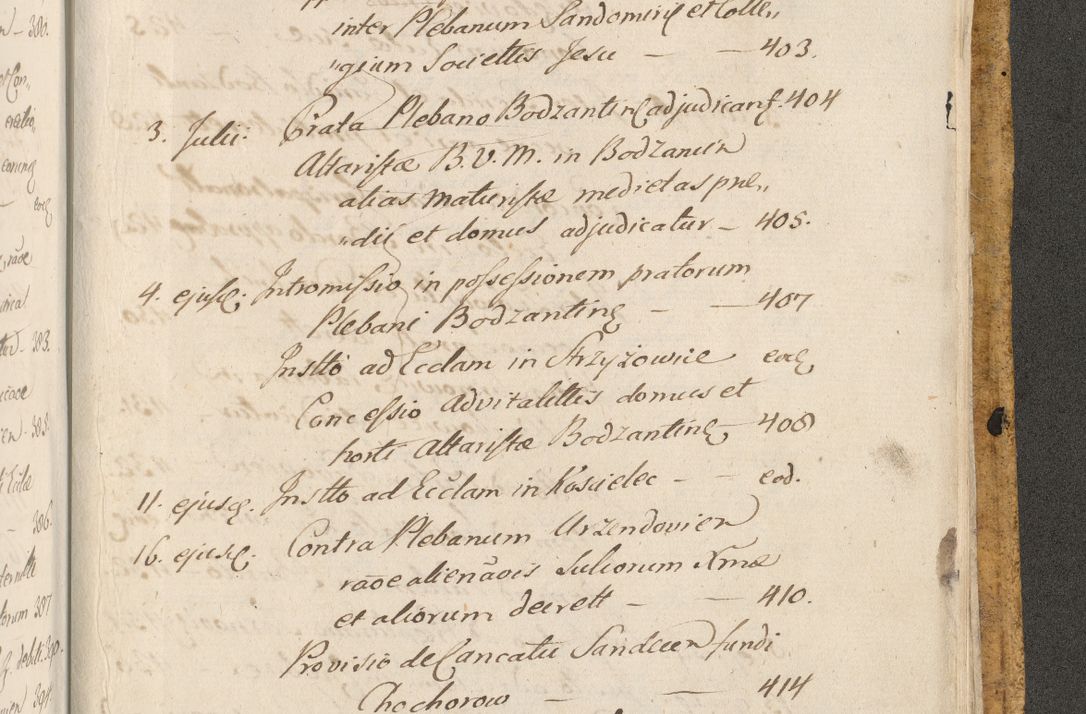 inter Plebanum Sandomirien et Colle„
„gium Societtis Jesu — — 403.
3. Julii: Prata Plebano Bodzantinen adjudicant. 404
Altaristæ B. V. M. in Bodzancin
alias maturistæ medietas præ„
„dii et domus adjudicatur — 405.
4. ejusd: Intromissio in possessionem pratorum
Plebani Bodzantinen — — 407
Instto ad Ecclam in Strzyżowice eod
Concessio advitalittis domus et
horti Altaristæ Bodzantinen 408
11. ejusd. Instto ad Ecclam in Koscielec — — eod.
16. ejusd. Contra Plebanum Urzendovien
raõe alienãois Xmæ
et aliorum decrett — — 410.
Provisio de Cancatu Sandecen fundi
Chochorow — — 414
- 380.
- 383.
- 385.
- 386.
387